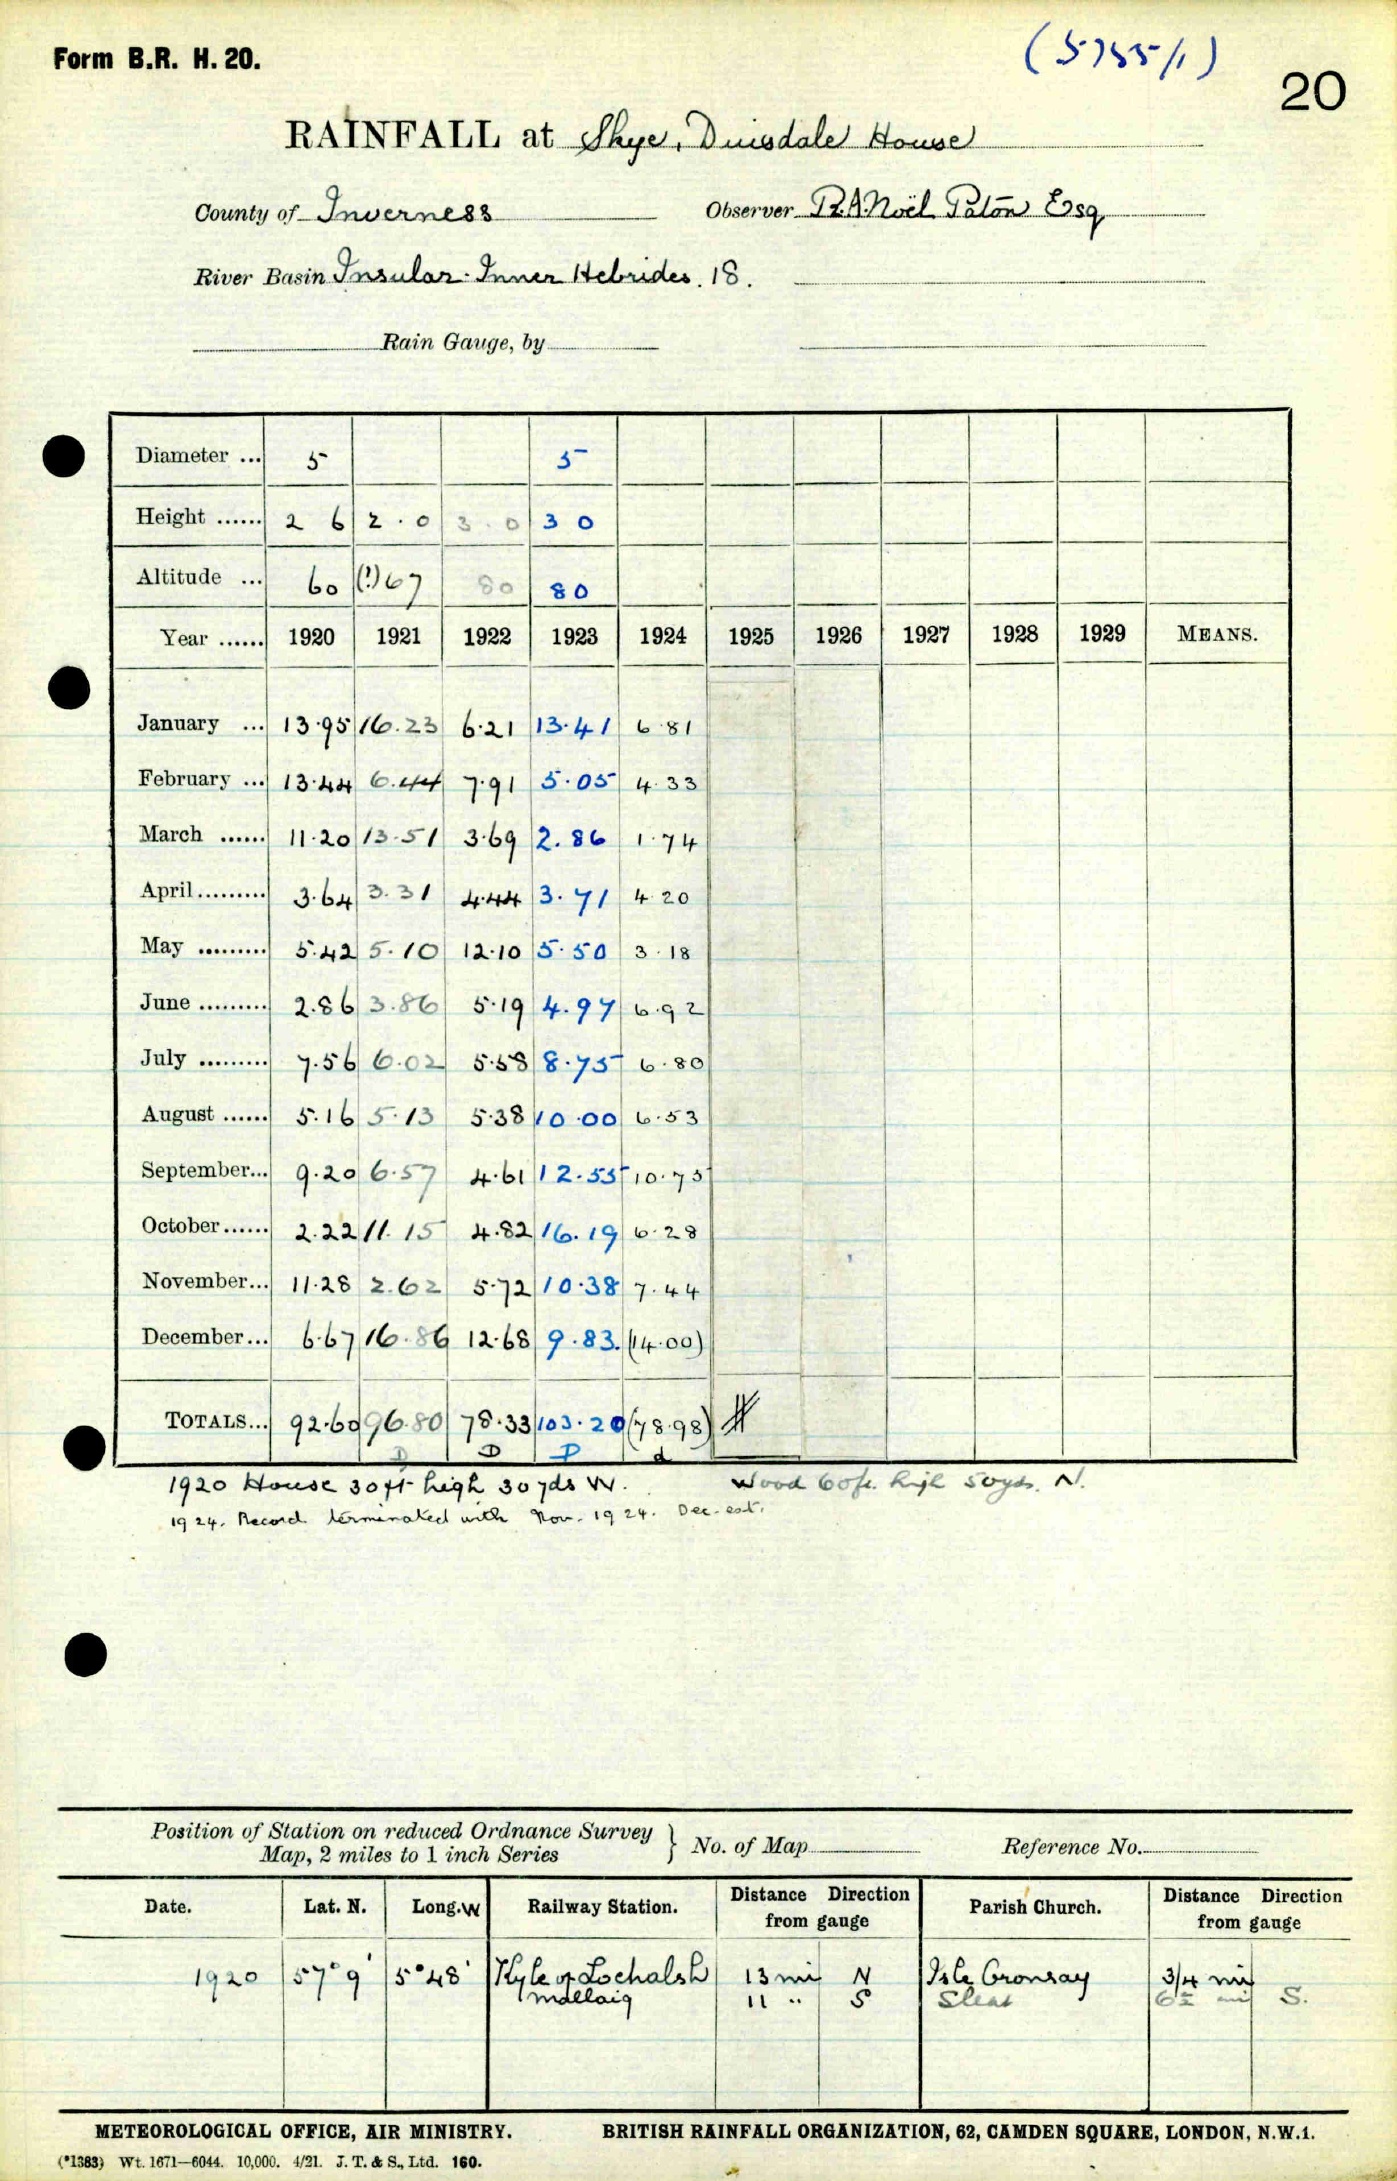 Form B.R. H. 20.
(5755/1)
20
RAINFALL at Skye, Duisdale House
County of Inverness Observer R.A. Noël Paton Esq
River Basin Insular - Inner Hebrides. 18.
Rain Gauge, by
Diameter ... 5 5
Height ...... 2 6 2 . 0 3 . 0 3 0
Altitude ... 60 (?) 67 80 80
Year ...... 1920 1921 1922 1923 1924 1925 1926 1927 1928 1929 MEANS.
January ... 13.95 16.23 6.21 13.41 6.81
February ... 13.44 6.44 7.91 5.05 4.33
March ...... 11.20 13.51 3.69 2.86 1.74
April ......... 3.64 3.31 4.44 3.71 4.20
May ......... 5.42 5.10 12.10 5.50 3.18
June ......... 2.86 3.86 5.19 4.97 6.92
July ......... 7.56 6.02 5.58 8.75 6.80
August ...... 5.16 5.13 5.38 10.00 6.53
September... 9.20 6.57 4.61 12.55 10.75
October...... 2.22 11.15 4.82 16.19 6.28
November... 11.28 2.62 5.72 10.38 7.44
December... 6.67 16.86 12.68 9.83. (14.00)
TOTALS... 92.60 96.80 78.33 103.20 (78.98)
D D P d
1920 House 30 ft high 30 yds W. Wood 60 ft. high 50 yds. N.
1924. Record terminated with Nov. 1924. Dec. est.
Position of Station on reduced Ordnance Survey
Map, 2 miles to 1 inch Series } No. of Map Reference No.
Date. Lat. N. Long. W Railway Station. Distance Direction from gauge Parish Church. Distance Direction from gauge
1920 57° 9' 5° 48' Kyle of Lochalsh 13 mi N Isle Oronsay 3/4 mi
Mallaig 11 " S Sleat 6½ mi S.
METEOROLOGICAL OFFICE, AIR MINISTRY. BRITISH RAINFALL ORGANIZATION, 62, CAMDEN SQUARE, LONDON, N.W.1.
(*1383) Wt. 1671—6044. 10,000. 4/21. J. T. & S., Ltd. 160.